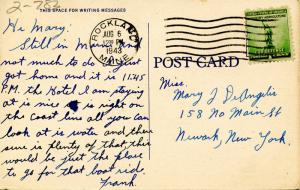 2-782
THIS SPACE FOR WRITING MESSAGES
Hi Mary.
Still in Maine and
not much to do but
got home and it is 11.45
P.M. the Hotel I am staying
at is nice is right on
the coast line all you can
look at is water and there
sure is plenty of that this
would be just the place
to go for that boat ride.
Frank.
ROCKLAND
AUG 6
1943
MAINE
POST CARD
Miss.
Mary J DeAngelis
158 No Main St
Newark, New York.